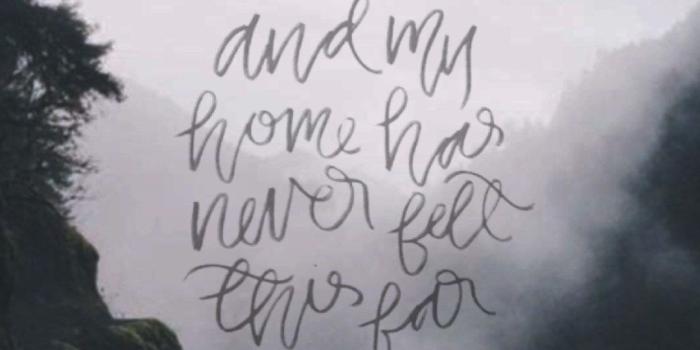 and my
home has
never felt
this far